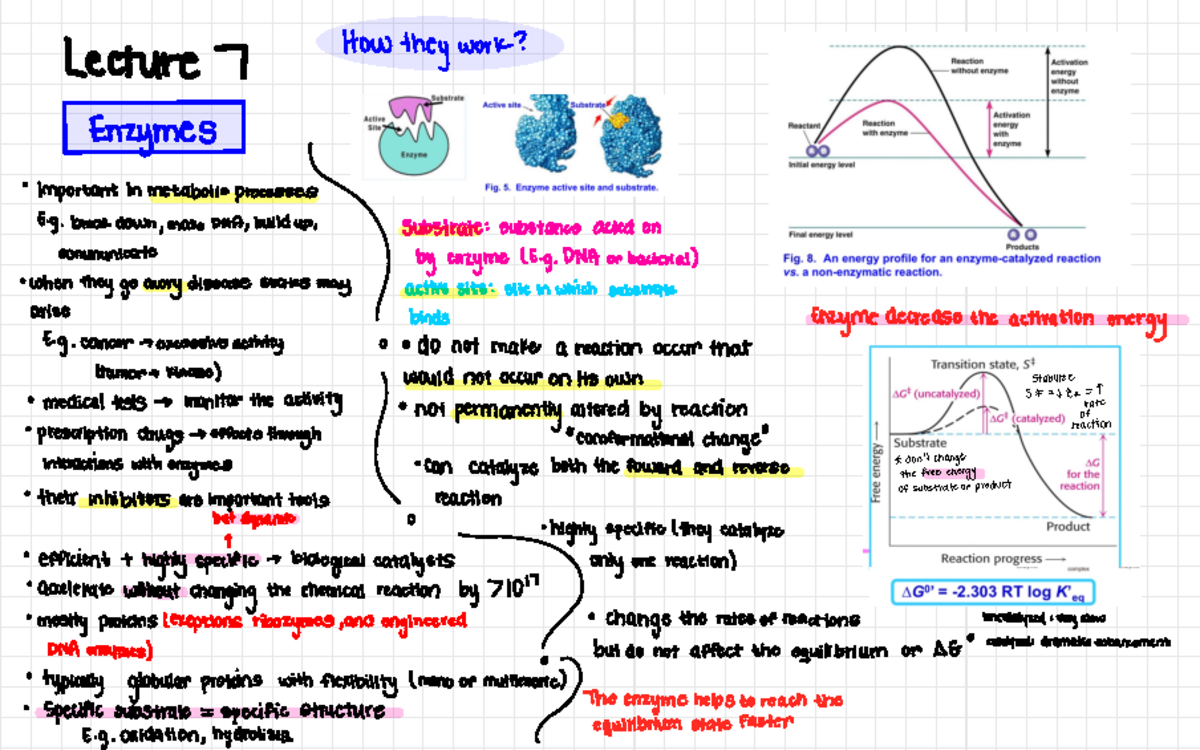 Lecture 7
Enzymes
• important in metabolic processes
E.g. break down, make DNA, build up,
communicate
• when they go awry disease states may
arise
E.g. cancer → excessive activity
(tumor → kinase)
• medical tests → monitor the activity
• prescription drugs → effects through
interactions with enzymes
• their inhibitors are important tools
but dynamic
↑
• efficient + highly specific → biological catalysts
• accelerate without changing the chemical reaction by >10¹⁷
• mostly proteins (exceptions ribozymes, and engineered
DNA enzymes)
• typically globular proteins with flexibility (mono or multimeric)
• Specific substrate = specific structure
E.g. oxidation, hydrolisis
How they work?
Substrate
Active
Site
Enzyme
Active site
Substrate
Fig. 5. Enzyme active site and substrate.
Substrate: substance acted on
by enzyme (E.g. DNA or bacterial)
active site: site in which substrate
binds
• do not make a reaction occur that
would not occur on its own
• not permanently altered by reaction
"conformational change"
• can catalyze both the foward and reverse
reaction
• highly specific (they catalyze
only one reaction)
• change the rates of reactions
but do not affect the equilibrium or ΔG°
The enzyme helps to reach the
equilibrium state faster
Reaction
without enzyme
Activation
energy
without
enzyme
Reactant
Reaction
with enzyme
Activation
energy
with
enzyme
Initial energy level
Final energy level
Products
Fig. 8. An energy profile for an enzyme-catalyzed reaction
vs. a non-enzymatic reaction.
Enzyme decrease the activation energy
Transition state, S‡
ΔG‡ (uncatalyzed)
Stabilize
S‡ = ↓ Ea = ↑
rate
of
reaction
ΔG‡ (catalyzed)
Substrate
* don't change
the free energy
of substrate or product
ΔG
for the
reaction
Free energy →
Product
Reaction progress →
complex
ΔG⁰' = -2.303 RT log K'eq
uncatalyzed : very slow
catalyzed: dramatic enhancement